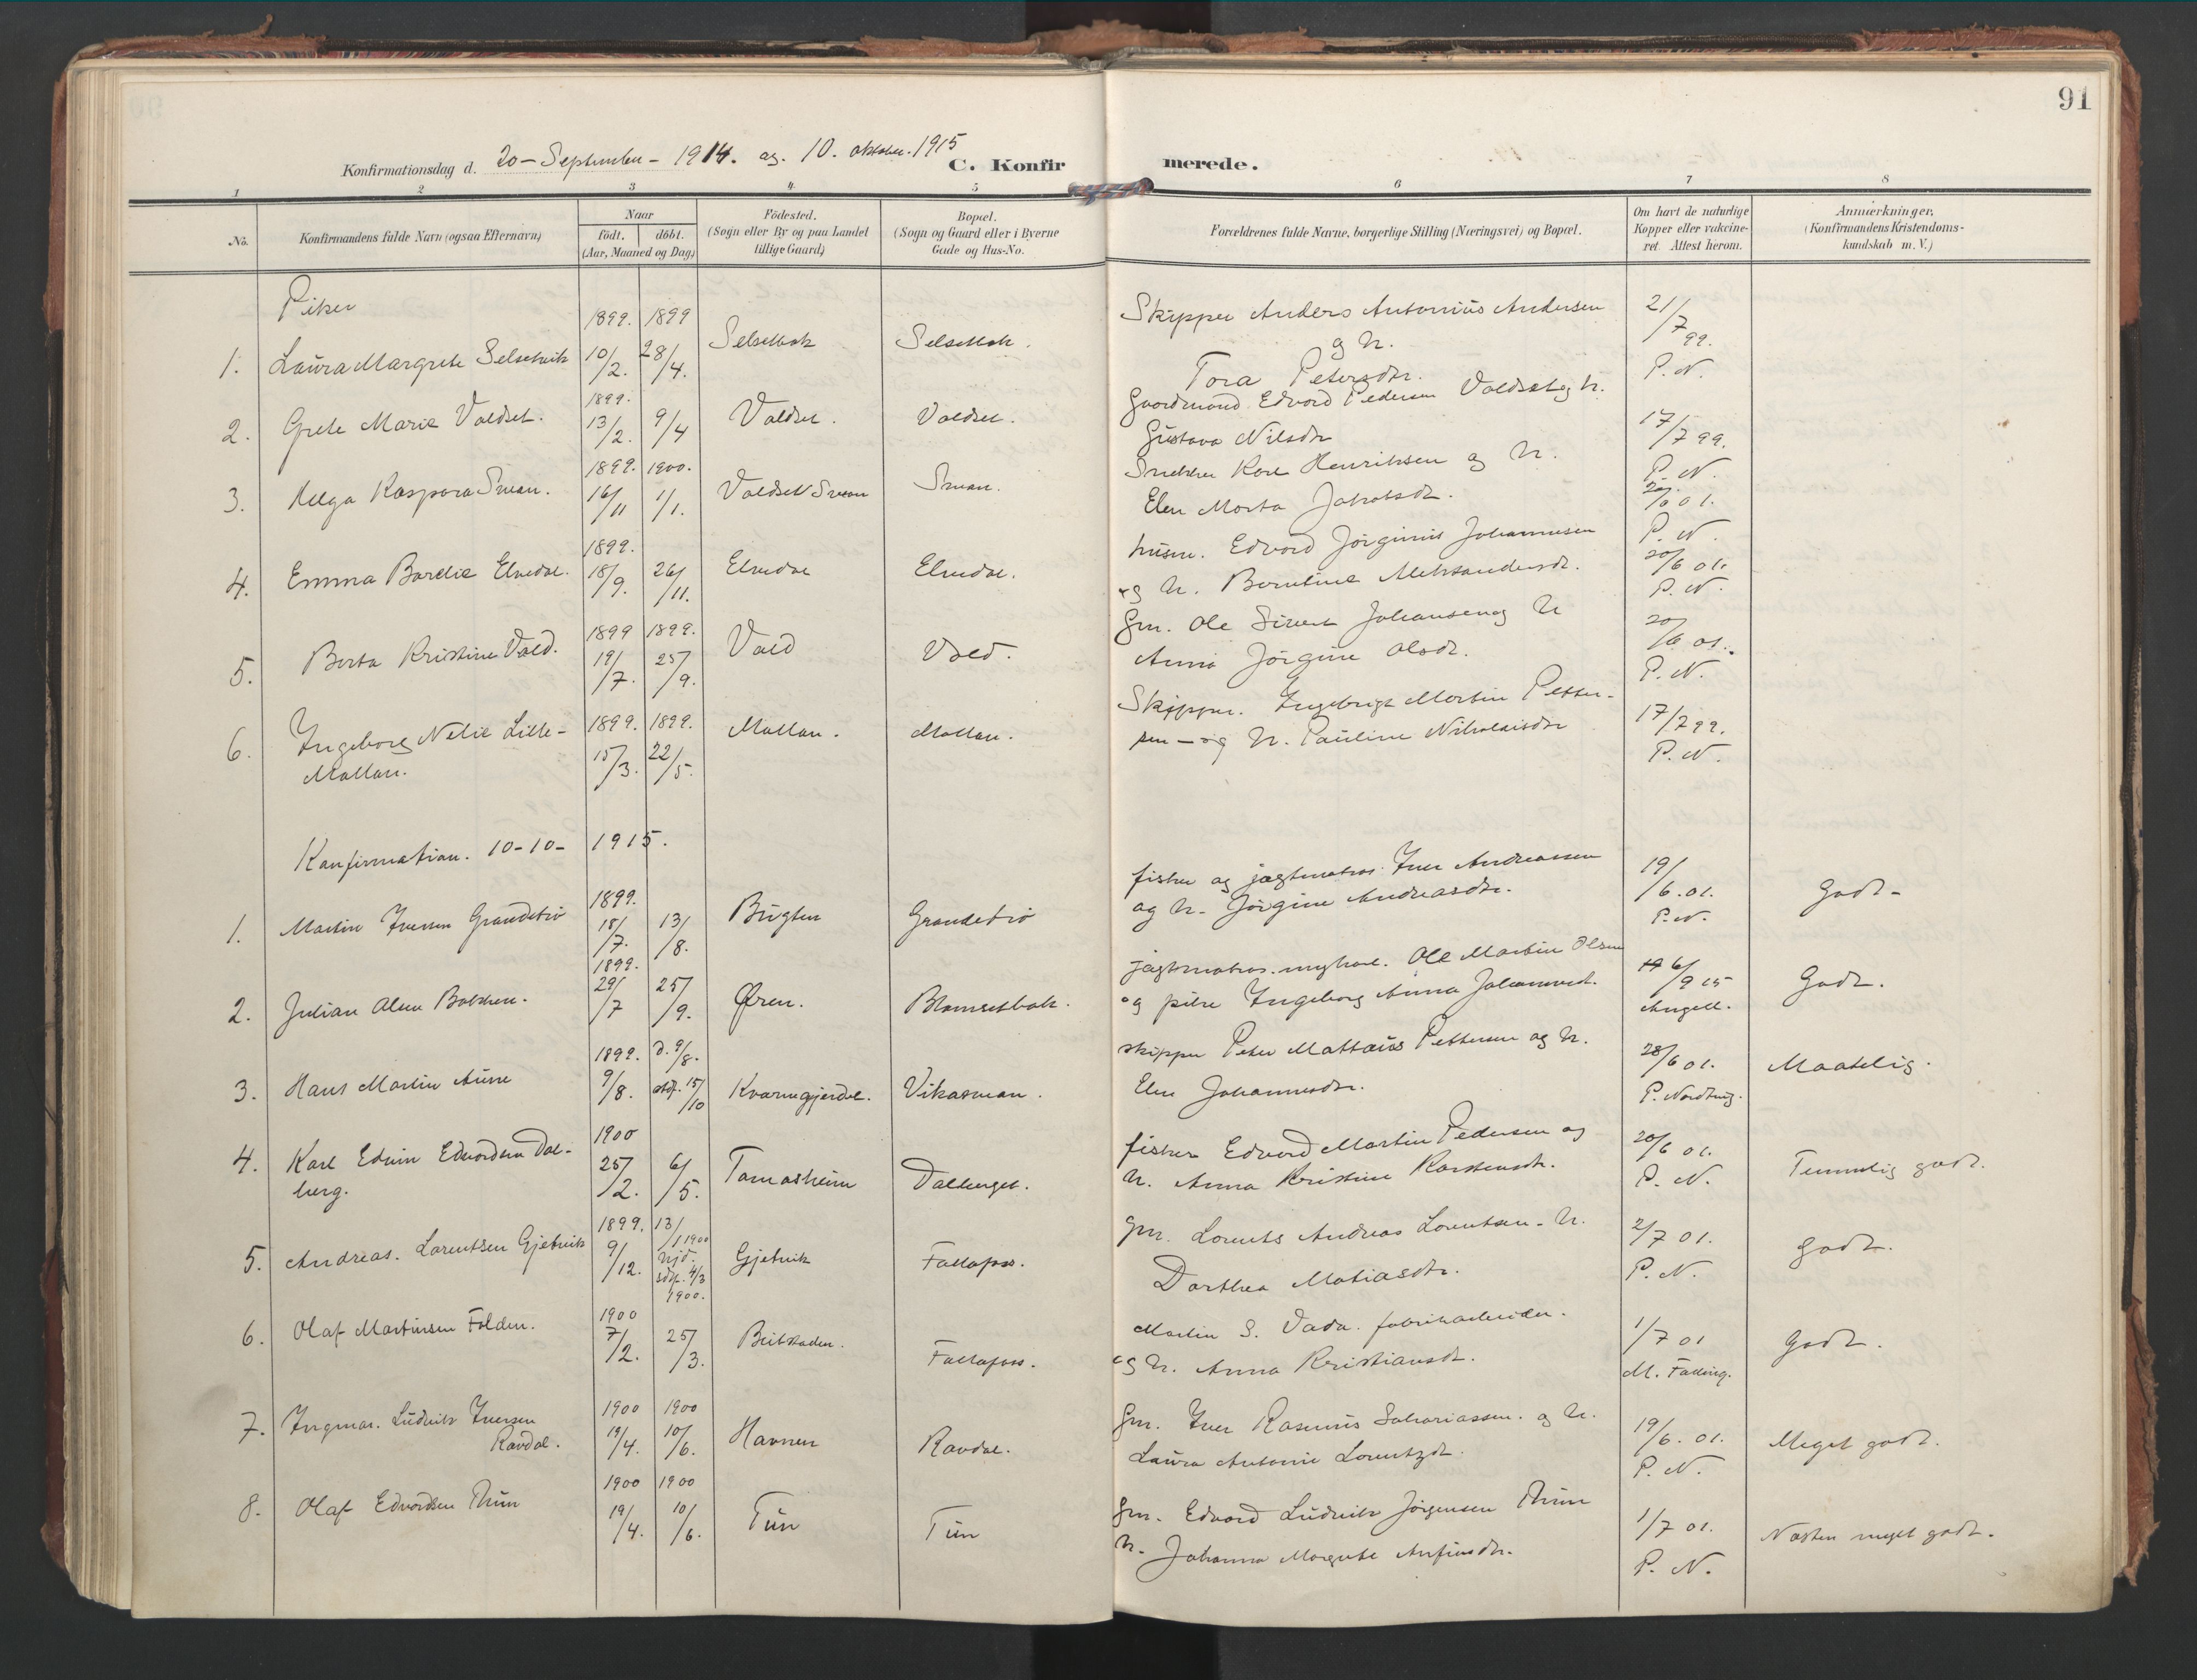 91
Konfirmationsdag d. 20 - September - 1914. og. 10. oktober. 1915
C. Konfirmerede.
1 2 3 4 5 6 7 8
No.
Konfirmandens fulde Navn (ogsaa Efternavn)
Naar
födt. döbt.
(Aar, Maaned og Dag)
Födested.
(Sogn eller By og paa Landet
tillige Gaard)
Bopæl.
(Sogn og Gaard eller i Byerne
Gade og Hus-No.
Forældrenes fulde Navne, borgerlige Stilling (Næringsvei) og Bopæl.
Om havt de naturlige
Kopper eller vakcine-
ret. Attest herom.
Anmærkninger.
(Konfirmandens Kristendoms-
kundskab m. V.)
Piker
1. Laura Margrete Selsetvik 1899. 10/2. 1899 28/4. Selsetbak Selsetbak. Skipper Anders Antonius Andersen
og h.
Tora Petersdtr. 21/7 99.
P. N.
2. Grete Marie Valdset. 1899. 13/2. 9/4 Valdset. Valdset. Gaardmand Edvard Pedersen Valdset og h.
Gustava Nilsdtr 17/7 99.
P. N.
3. Helga Kaspara Smean. 1899. 16/11 1900. 1/1. Valdset Smean Snekker Karl Henriksen og h.
Elen Marta Jakobsdt. 01.
P. N.
4. Emma Bardie Elvedal. 1899. 18/9. 26/11. Elvedal Elvedal. husm. Edvard Jørginus Johannesen
og h. Berntine Aleksandersdt. 20/6 01.
P. N.
5. Berta Kristine Vald. 1899 19/7. 1899. 25/9. Vald Vald. Gm. Ole Sivert Johansen og h
Anna Jørgine Olsdt. 20/6 01.
P. N.
6. Ingeborg Nelie Lille-
Mallan. 1899. 15/3. 1899. 22/5. Mallan. Mallan. Skipper. Ingebrigt Martin Petter-
sen - og h. Pauline Nikolaisdtr 17/7 99.
P. N.
Konfirmation. 10-10- 1915.
1. Martin Iversen Grandebø 1899. 18/7. 13/8. Bugten Grandebø fisker og jagtmatros. Iver Andreassen
og h. Jørgine Andreasdtr. 19/6. 01.
P. N. Godt-
2. Julian Olsen 1899. 29/7 25/9. Øren. Blomsetbak. jagtmatros. ungkarl. Ole Martin Olsen
og pike Ingeborg Anna Johannesd. 6/9 15
Angell. Godt.
3. Hans Martin Aune 1899. 9/8. d. 9/8. stdf. 15/10 Kvarngjerdet. Vikasmean. skipper Peter Mattæus Pettersen og h.
Elen Johannesdtr. 28/6 01.
P. Nordtug. Maatelig.
4. Karl Edvin Edvardsen Dal-
berg. 1900 25/2. 6/5. Tomasheim Dalberget. fisker Edvard Martin Pedersen og
h. Anna Kristine Karstensdtr. 20/6 01.
P. N. Temmelig godt.
5. Andreas. Lorentsen Gjetvik 1899. 9/12. 13/1 1900 hjd. stdf. 4/3 1900. Gjetvik Fallafoss. gm. Lorents Andreas Lorentsen - h.
Dorthea Matiasdtr. 2/7 01.
P. N. Godt.
6. Olaf Martinsen Folden. 1900 7/2. 25/3. Beitstaden. Fallafoss. Martin S. Vada. fabrikarbeider.
og h. Anna Kristiansdt. 1/7 01
M. Falling. Godt.
7. Ingmar. Ludvik Iversen
Ravdal. 1900 19/4. 1900 10/6. Havnen Ravdal. Gm. Iver Rasmus Sakariassen. og h.
Laura Antonie Lorentzdt. 19/6. 01.
P. N. Meget godt.
8. Olaf Edvardsen Thun 1900 19/4. 1900 10/6. Tun Tun Gm. Edvard Ludvik Jørgensen Thun
h. Johanna Margrete Anfinsdtr. 1/7 01.
P. N. Næsten meget godt.